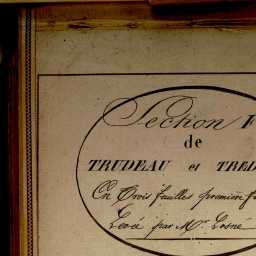 Section
de
TRUDEAU et TRED
En Trois feuilles premiere
Levé par Mr. Losné